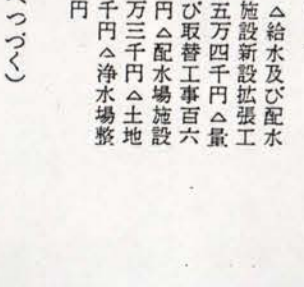 △給水及び配水
施設新設拡張工
五万四千円△量
び取替工事百六
円△配水場施設
万三千円△土地
千円△浄水場整
円
（つづく）